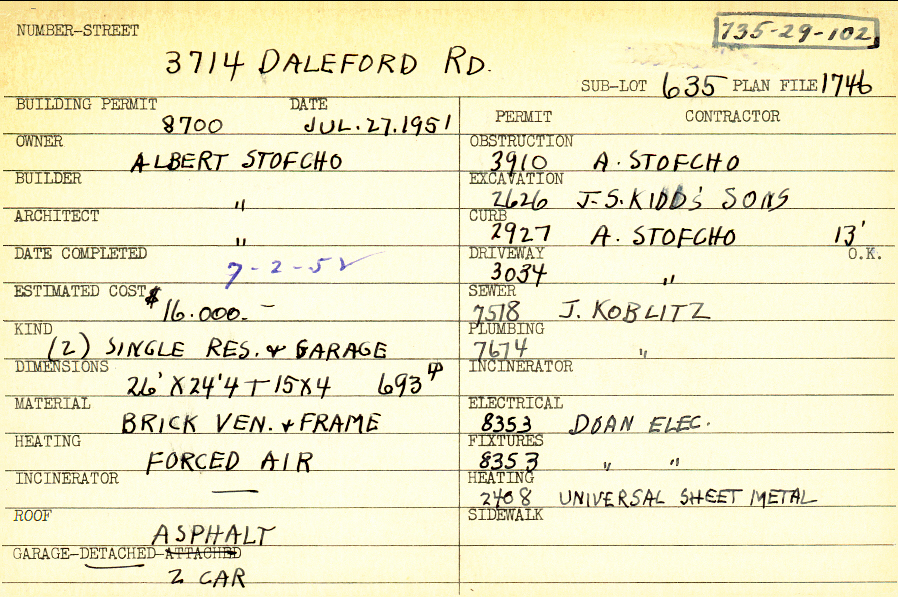 NUMBER-STREET
735-29-102
3714 DALEFORD RD.
SUB-LOT 635 PLAN FILE 1746
BUILDING PERMIT DATE
8700 JUL.27.1951
OWNER
ALBERT STOFCHO
BUILDER
"
ARCHITECT
"
DATE COMPLETED
7-2-52
ESTIMATED COST
$16.000.-
KIND
(2) SINGLE RES. & GARAGE
DIMENSIONS
26' X 24'4 + 15X4 693
MATERIAL
BRICK VEN. & FRAME
HEATING
FORCED AIR
INCINERATOR
—
ROOF
ASPHALT
GARAGE-DETACHED-ATTACHED
2 CAR
PERMIT CONTRACTOR
OBSTRUCTION
3910 A. STOFCHO
EXCAVATION
2626 J.S. KIDD'S SONS
CURB
2927 A. STOFCHO 13'
DRIVEWAY O.K.
3034 "
SEWER
7518 J. KOBLITZ
PLUMBING
7674 "
INCINERATOR
ELECTRICAL
8353 DOAN ELEC.
FIXTURES
8353 " "
HEATING
2408 UNIVERSAL SHEET METAL
SIDEWALK